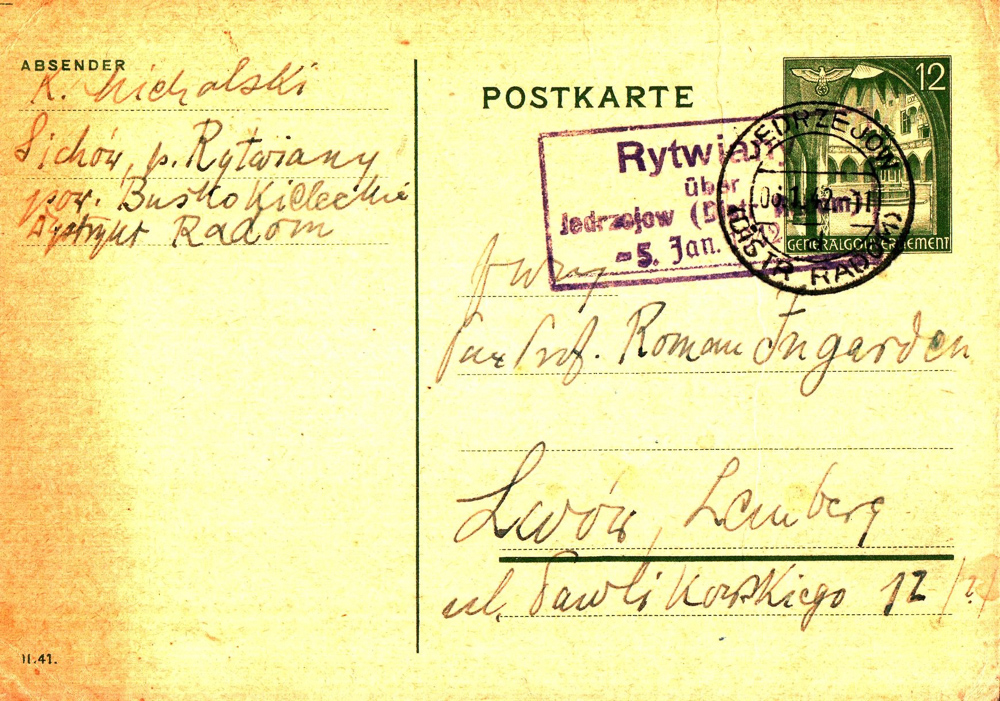 ABSENDER
K. Michalski
Sichów, p. Rytwiany
pow. Busko Kieleckie
Dystrykt Radom
II.41.
POSTKARTE
12
GENERALGOUVERNEMENT
Rytwiany
über
Jedrzejow (Distr. Radom)
-5. Jan.
JEDRZEJÓW
(DISTR. RADOM)
Pan Prof. Roman Ingarden
Lwów, Lemberg
ul. Pawlikowskiego 12